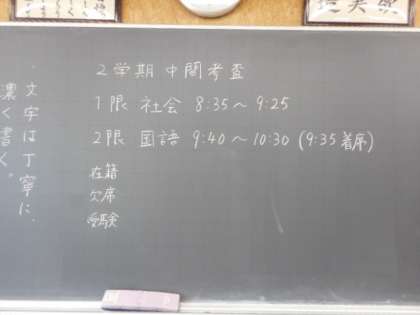 2学期 中間考査
1限 社会 8:35～9:25
2限 国語 9:40～10:30 (9:35着席)
在籍
欠席
受験
・文字は丁寧に、
濃く書く。